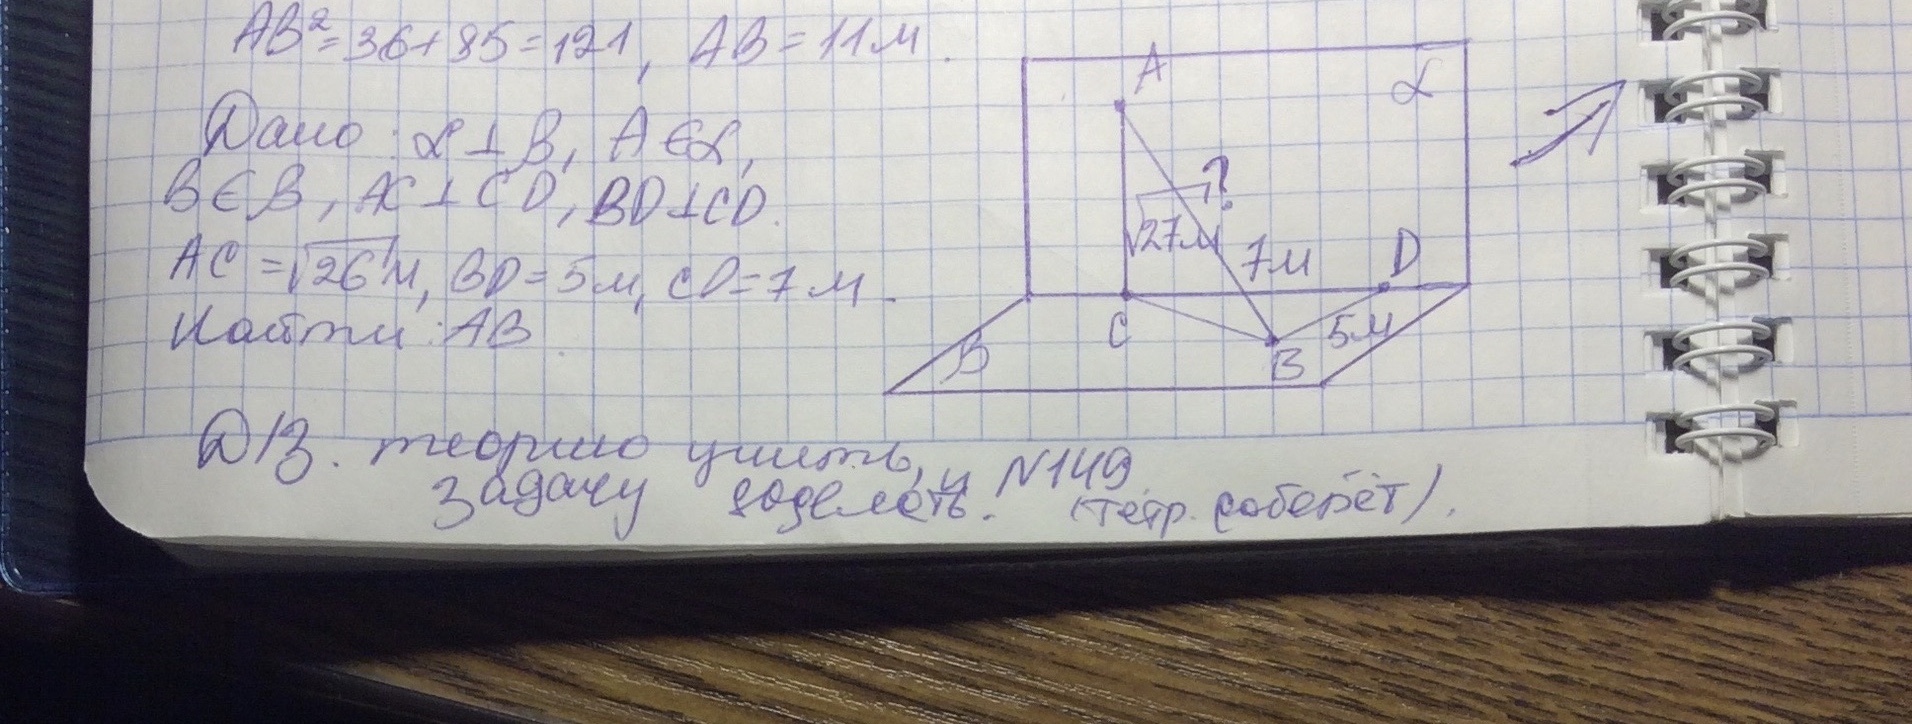 AB²=36+85=121, AB=11м.
Дано: α⊥β, A∈α,
B∈β, AC⊥CD, BD⊥CD.
AC=√26 м, BD=5м, CD=7м.
Найти: AB.
A
α
?
√27м
7м
D
C
5м
B
β
Д/З. теорию учить, и №149
задачу доделать. (тетр. соберёт).